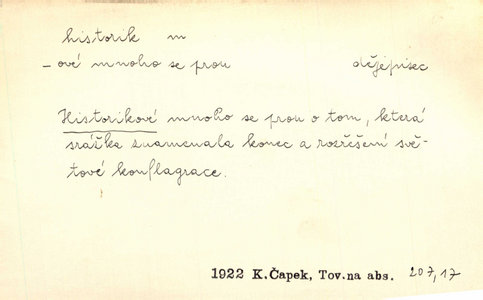 historik m
– ové mnoho se prou dějepisec
Historikové mnoho se prou o tom, která
srážka znamenala konec a rozřešení svě-
tové konflagrace.
1922 K.Čapek, Tov.na abs. 207,17